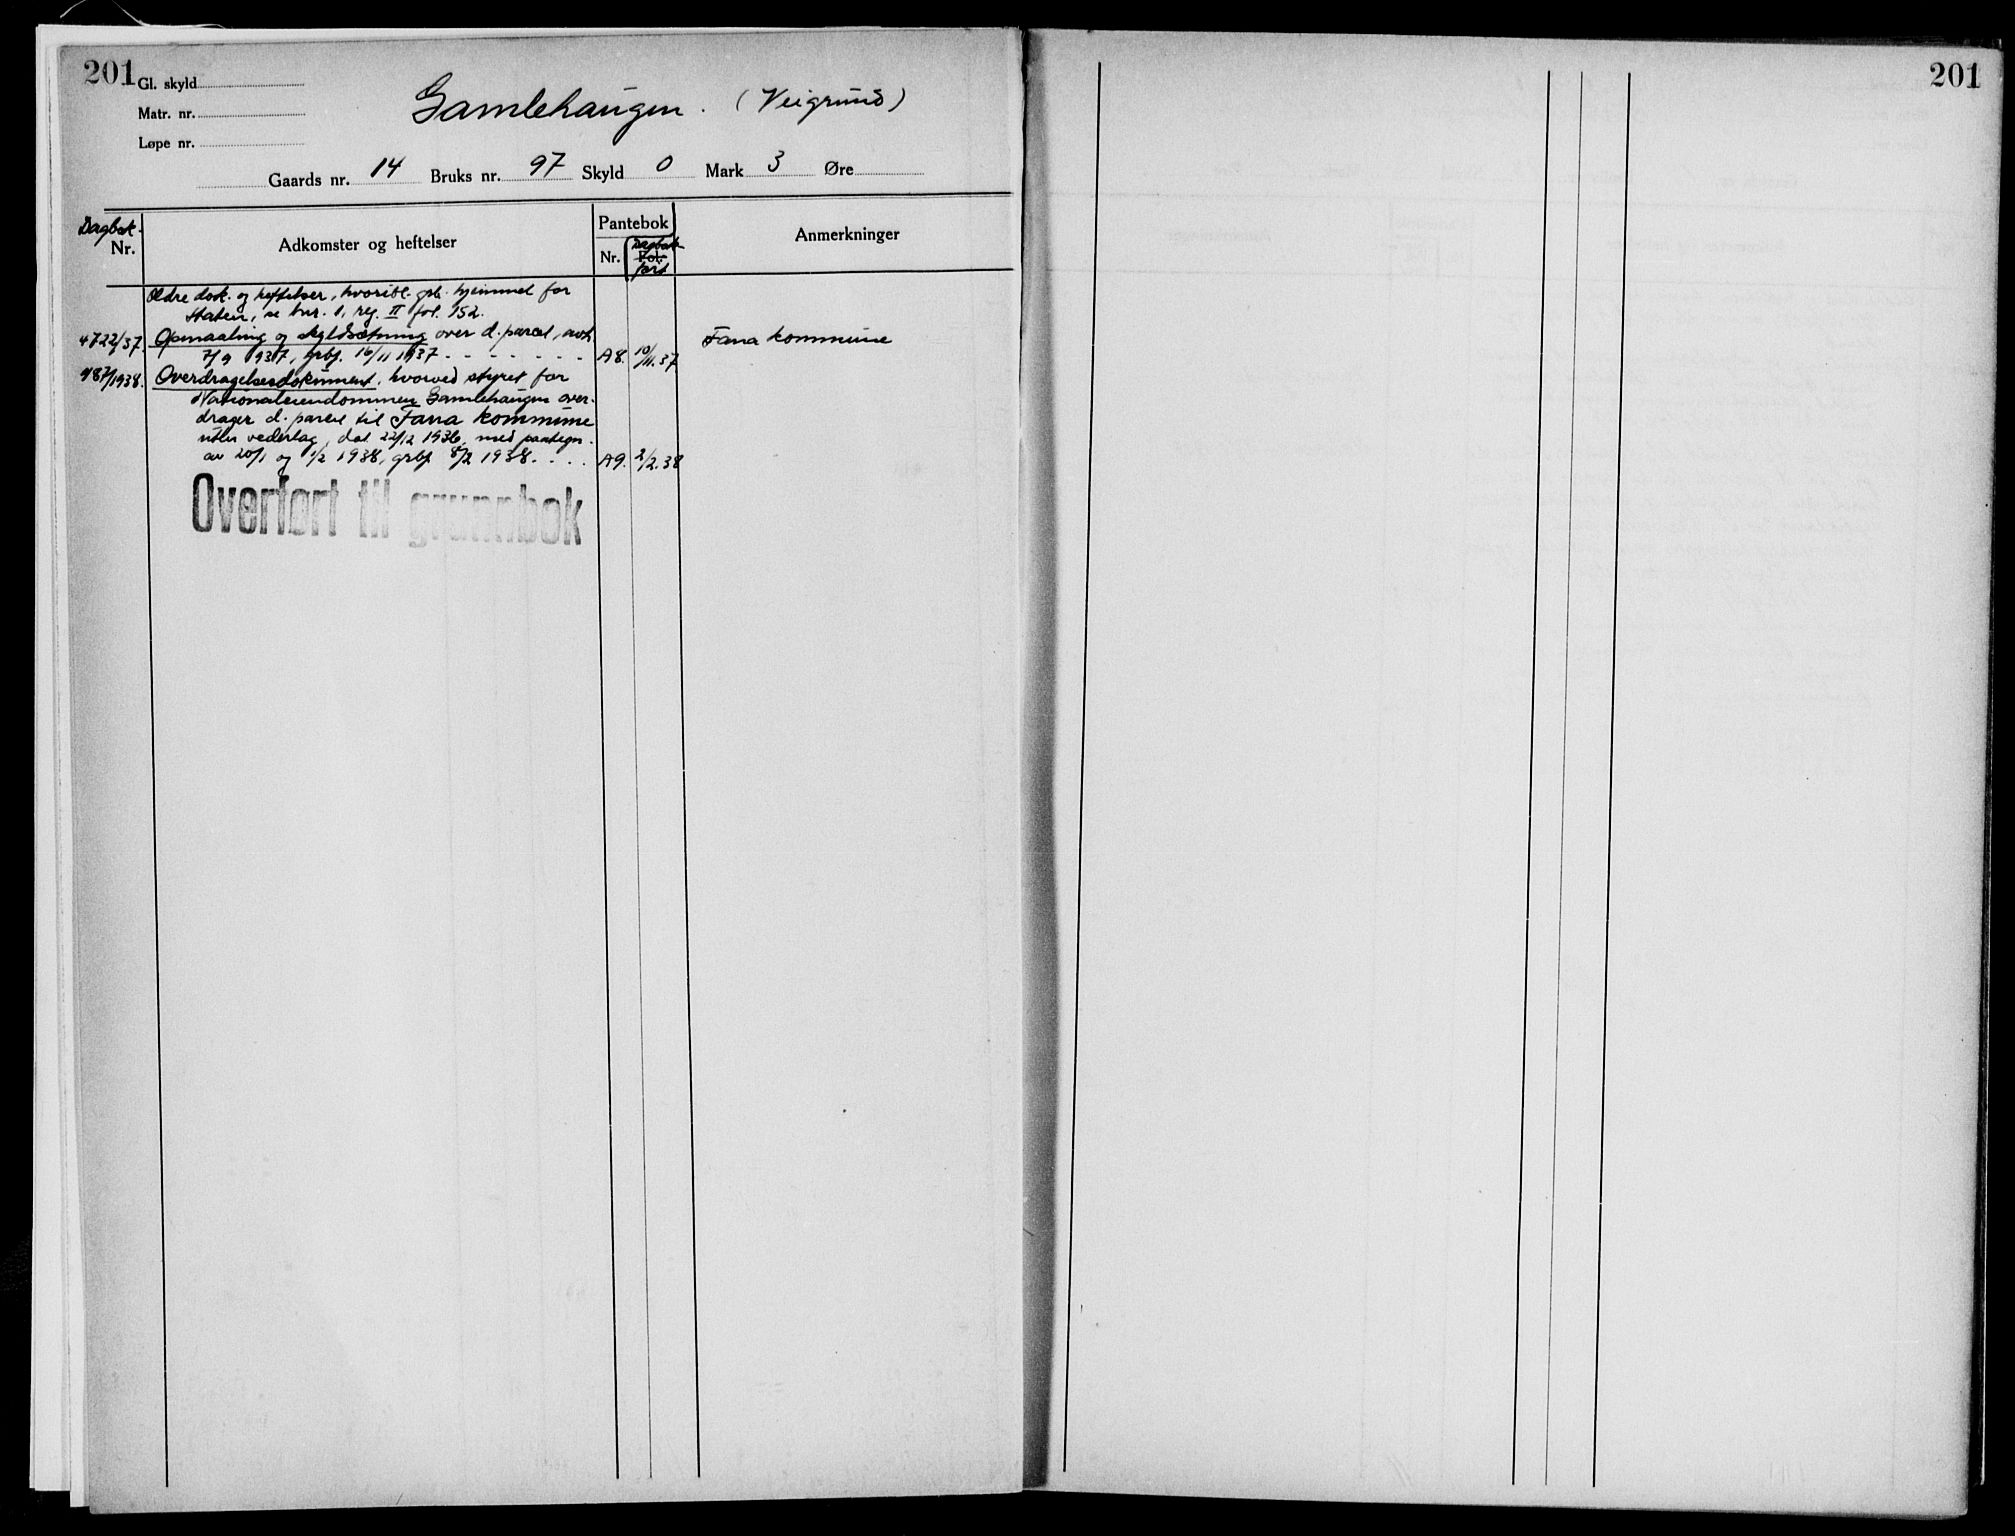 201
Gl. skyld
Matr. nr.
Løpe nr.
Gamlehaugen. (Veigrund)
Gaards nr. 14 Bruks nr. 97 Skyld 0 Mark 3 Øre
Dagbok.
Nr.
Adkomster og heftelser
Pantebok
Nr.
Dagbok
Fol.
ført
Anmerkninger
Ældre dok. og heftelser, hvoribl. hjemmel for
Staten, se bnr. 1, reg. II fol. 152.
4722/37. Opmaaling og skyldsætning over d. parcel, avh.
7/9 1937, grbf. 16/11 1937 - - - - - - - A8. 10/11.37 Fana kommune
487/1938. Overdragelsesdokument, hvorved styret for
Nationaleiendommen Gamlehaugen over-
drager d. parcel til Fana kommune
uten vederlag, dat. 22/12 1936, med paategn.
av 20/1 og 1/2 1938, grbf. 8/2 1938. . . . A9. 2/2.38
Overført til grunnbok
201